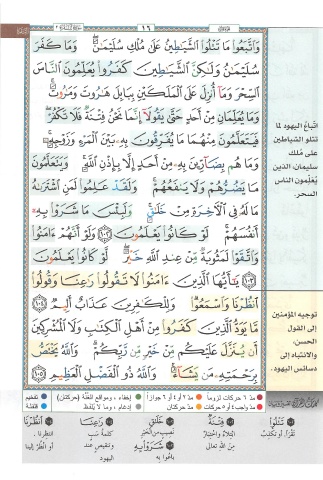 ١٦
وَاتَّبَعُوا مَا تَتْلُوا الشَّيَاطِينُ عَلَىٰ مُلْكِ سُلَيْمَانَ ۖ وَمَا كَفَرَ
سُلَيْمَانُ وَلَٰكِنَّ الشَّيَاطِينَ كَفَرُوا يُعَلِّمُونَ النَّاسَ
السِّحْرَ وَمَا أُنزِلَ عَلَى الْمَلَكَيْنِ بِبَابِلَ هَارُوتَ وَمَارُوتَ ۚ
وَمَا يُعَلِّمَانِ مِنْ أَحَدٍ حَتَّىٰ يَقُولَا إِنَّمَا نَحْنُ فِتْنَةٌ فَلَا تَكْفُرْ ۖ
فَيَتَعَلَّمُونَ مِنْهُمَا مَا يُفَرِّقُونَ بِهِ بَيْنَ الْمَرْءِ وَزَوْجِهِ ۚ
وَمَا هُم بِضَارِّينَ بِهِ مِنْ أَحَدٍ إِلَّا بِإِذْنِ اللَّهِ ۚ وَيَتَعَلَّمُونَ
مَا يَضُرُّهُمْ وَلَا يَنفَعُهُمْ ۚ وَلَقَدْ عَلِمُوا لَمَنِ اشْتَرَاهُ
مَا لَهُ فِي الْآخِرَةِ مِنْ خَلَاقٍ ۚ وَلَبِئْسَ مَا شَرَوْا بِهِ
أَنفُسَهُمْ ۚ لَوْ كَانُوا يَعْلَمُونَ ١٠٢ وَلَوْ أَنَّهُمْ آمَنُوا
وَاتَّقَوْا لَمَثُوبَةٌ مِّنْ عِندِ اللَّهِ خَيْرٌ ۖ لَّوْ كَانُوا يَعْلَمُونَ
١٠٣ يَا أَيُّهَا الَّذِينَ آمَنُوا لَا تَقُولُوا رَاعِنَا وَقُولُوا
انظُرْنَا وَاسْمَعُوا ۗ وَلِلْكَافِرِينَ عَذَابٌ أَلِيمٌ ١٠٤
مَّا يَوَدُّ الَّذِينَ كَفَرُوا مِنْ أَهْلِ الْكِتَابِ وَلَا الْمُشْرِكِينَ
أَن يُنَزَّلَ عَلَيْكُم مِّنْ خَيْرٍ مِّن رَّبِّكُمْ ۗ وَاللَّهُ يَخْتَصُّ
بِرَحْمَتِهِ مَن يَشَاءُ ۚ وَاللَّهُ ذُو الْفَضْلِ الْعَظِيمِ ١٠٥
اتّباعُ اليهود لما
تتلو الشياطين
على مُلك
سليمان، الذين
يُعلّمون الناس
السحر.
توجيه المؤمنين
إلى القول
الحسن،
والانتباه إلى
دسائس اليهود.
مد ٦ حركات لزوماً مد ٢ أو ٤ أو ٦ جوازاً إخفاء، ومواقع الغُنّة (حركتان) تفخيم
مد واجب ٤ أو ٥ حركات مد حركتان إدغام، وما لا يُلفظ قلقلة
تَتْلُوا
تقرأ، أو تكذب
فِتْنَةٌ
ابتلاء واختبار
من الله تعالى
خَلَاقٍ
نصيب من الخير
شَرَوْا بِهِ
باعوا به
رَاعِنَا
كلمة سب
وتنقيص عند
اليهود
انظُرْنَا
انتظرنا،
أو انظر إلينا